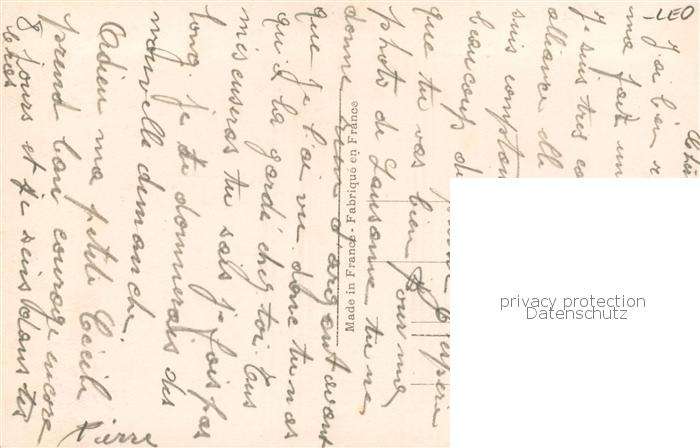 -LEO
J'ai bien r
ma fait un
je suis tres co
alliance elle
suis comptan
beaucoup de
J'esperi
que tu vas bien Pour ma
photo de Lausanne tu ne
donne rien d'argent avant
que je l'ai vu donc tu nas
qu'a la garde chez toi. Tus
miscuseras tu sais je fais pas
long. Je te donnerais des
nouvelle dimanche
Adieu ma petite Cécile
prend bon courage encore
8 jours et je suis dans tes
bras
Pierre
Made in France - Fabriqué en France
privacy protection
Datenschutz